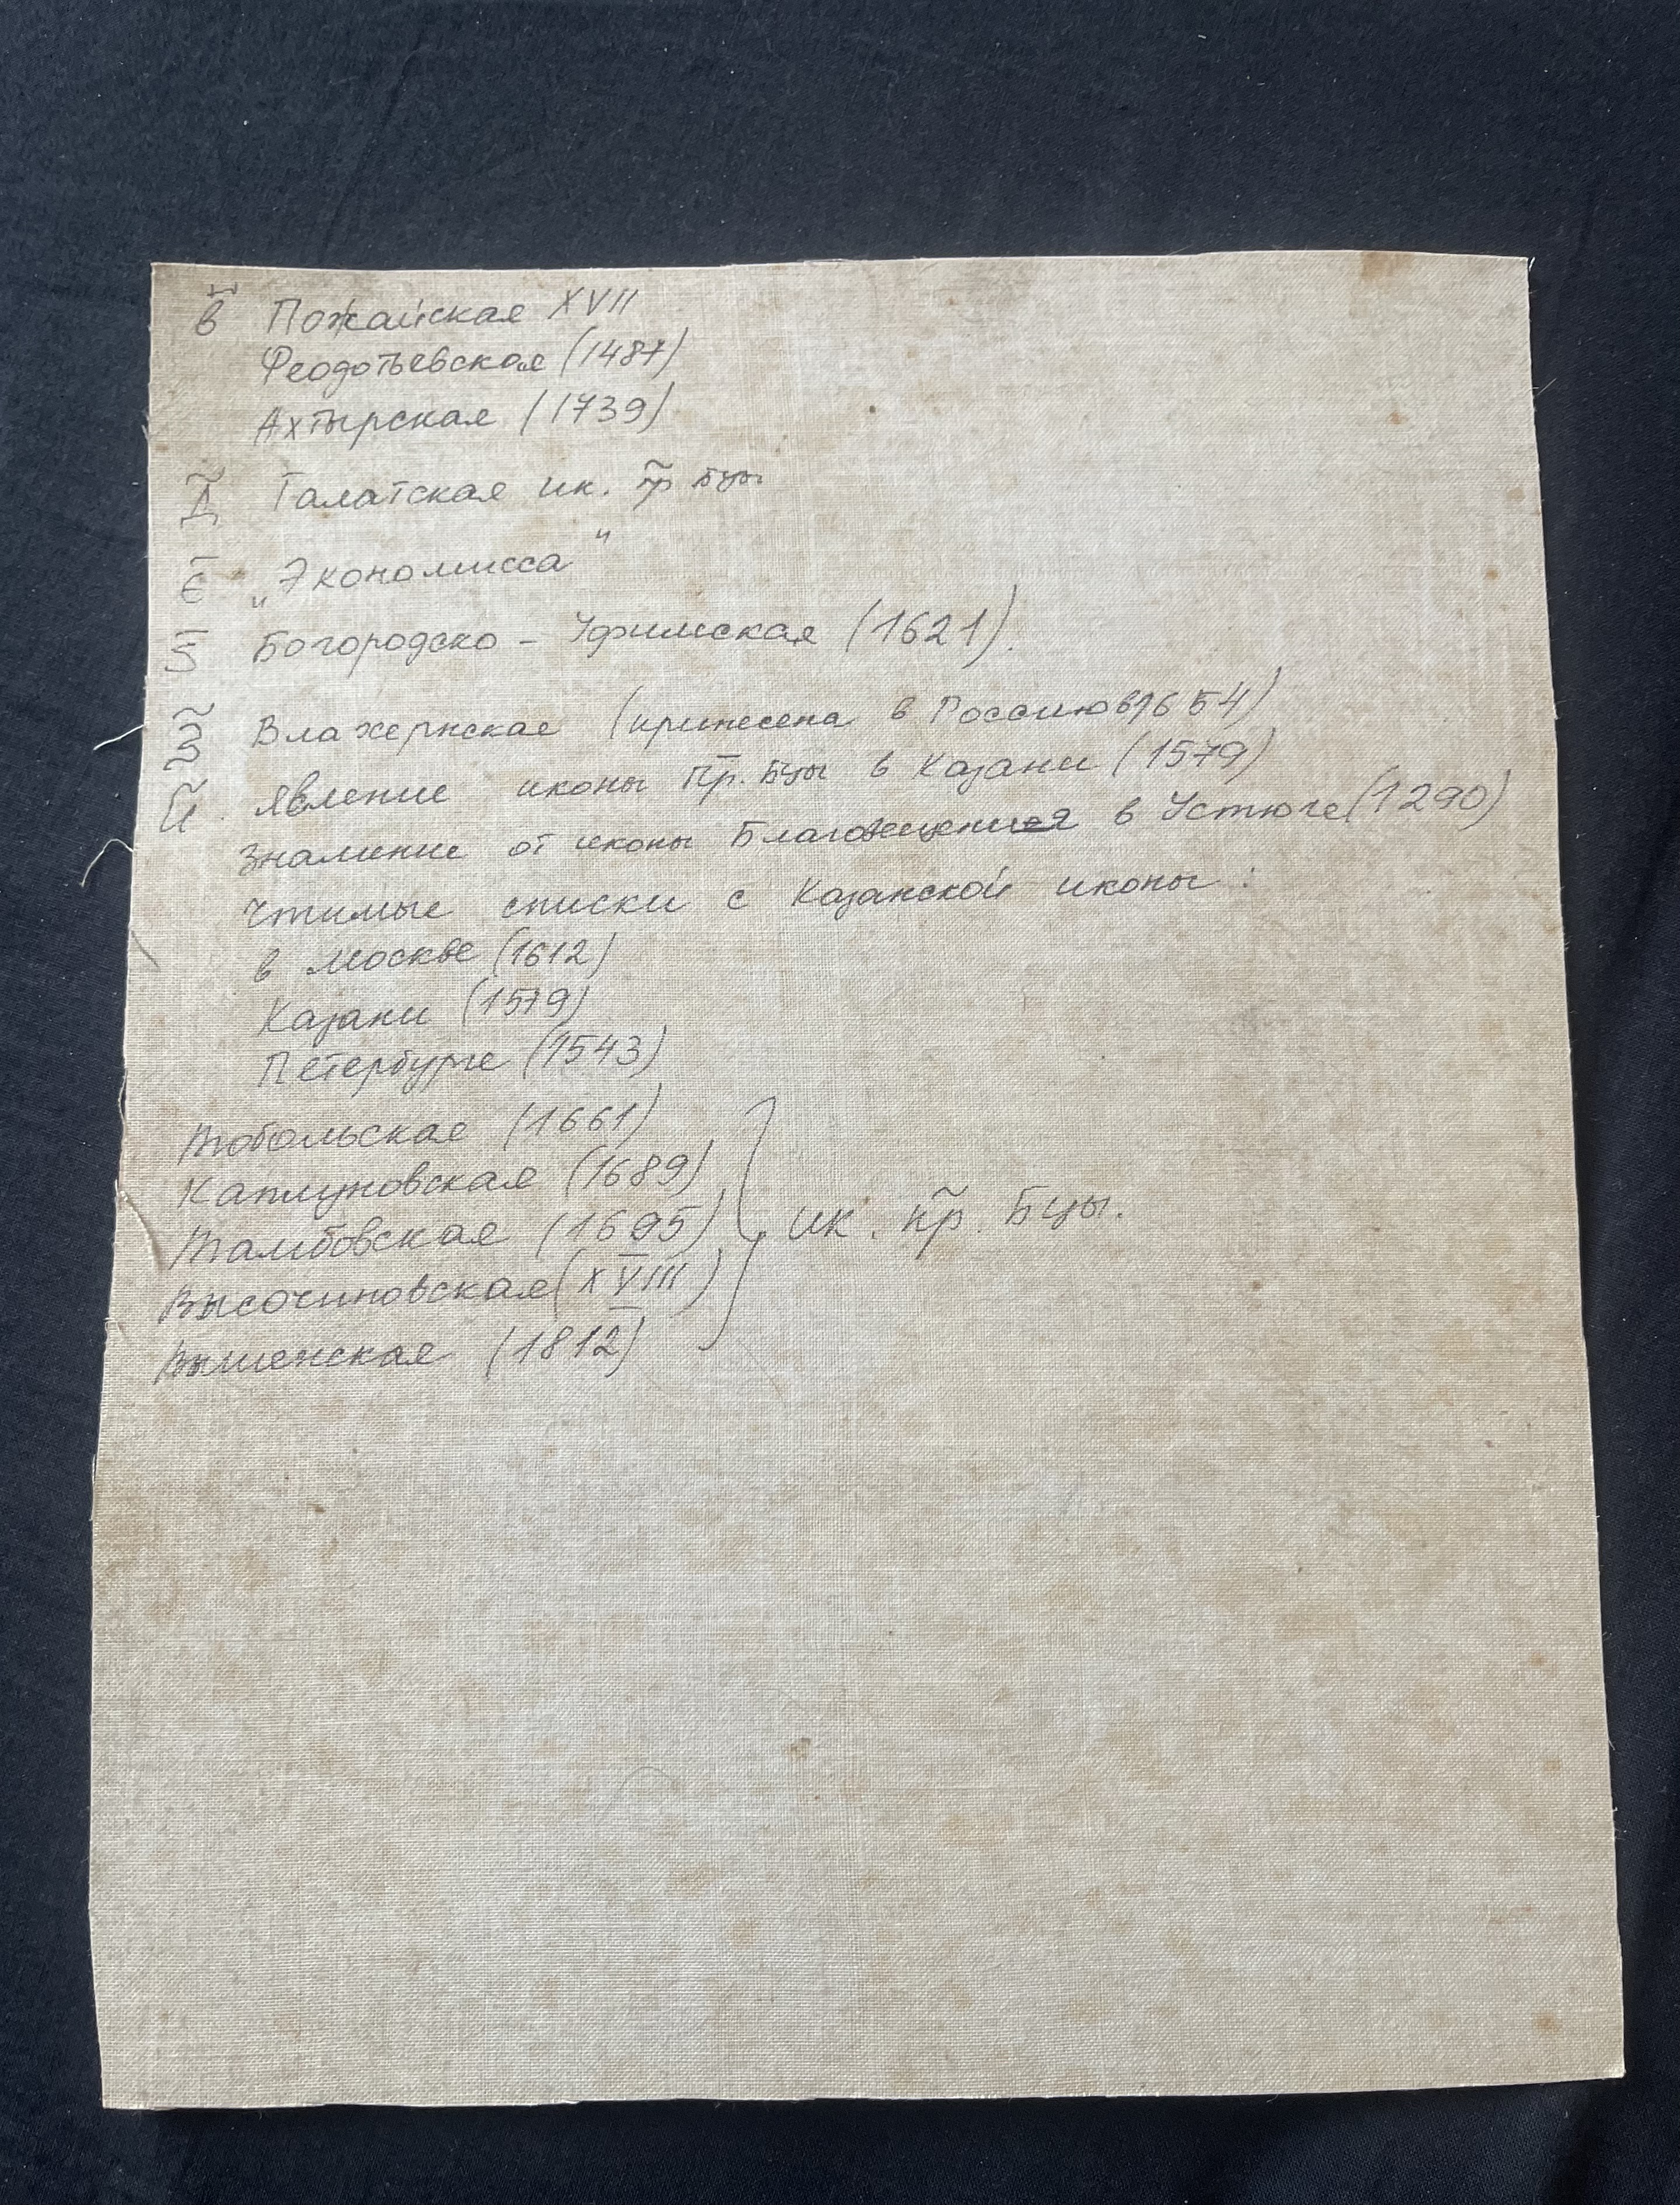 в̃ Пожайская XVII
Феодотьевская (1487)
Ахтырская (1739)
Д̃ Галатская ик. пр̃ Бцы
Є̃ „Экономисса"
Ѕ̃ Богородско - Уфимская (1621).
З̃ Влахернская (принесена в Россию в 1654)
И̃. Явление иконы Пр̃. Бцы в Казани (1579)
Знамение от иконы Благовещения в Устюге (1290)
Чтимые списки с Казанской иконы:
в Москве (1612)
Казани (1579)
Петербурге (1543)
Тобольская (1661)
Каплуновская (1689)
Тамбовская (1695) ик. пр̃. Бцы.
Высочиновская (XVIII)
Вышенская (1812)